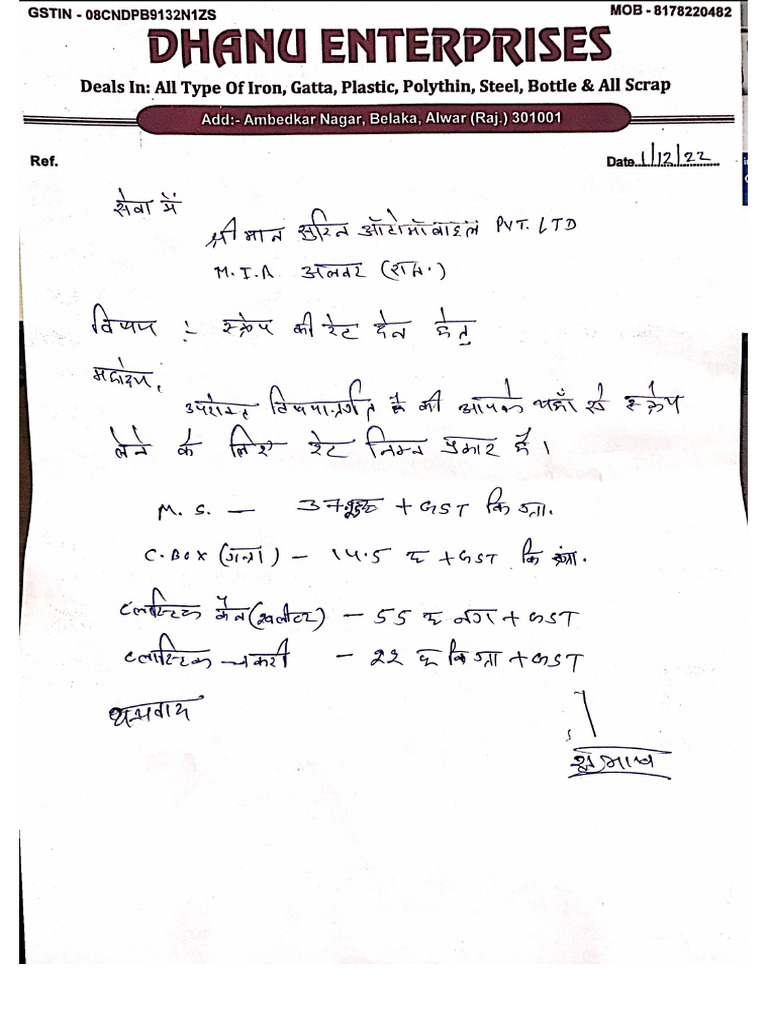 GSTIN - 08CNDPB9132N1ZS
MOB - 8178220482
DHANU ENTERPRISES
Deals In: All Type Of Iron, Gatta, Plastic, Polythin, Steel, Bottle & All Scrap
Add:- Ambedkar Nagar, Belaka, Alwar (Raj.) 301001
Ref.
Date 1/12/22
सेवा में
श्री मान सुरिन ऑटोमोबाइल PVT. LTD
M.I.A अलवर (राज.)
विषय :- स्क्रेप की रेट देने हेतु
महोदय,
उपरोक्त विषयान्तर्गत है की आपके यहाँ से स्क्रेप
लेने के लिए रेट निम्न प्रकार है।
M. S. — 37 + GST कि ग्रा.
C. BOX (गत्ता) – 14.5 रु + GST कि ग्रा.
प्लास्टिक केन – 55 रु नग + GST
प्लास्टिक – 22 रु कि ग्रा + GST
धन्यवाद